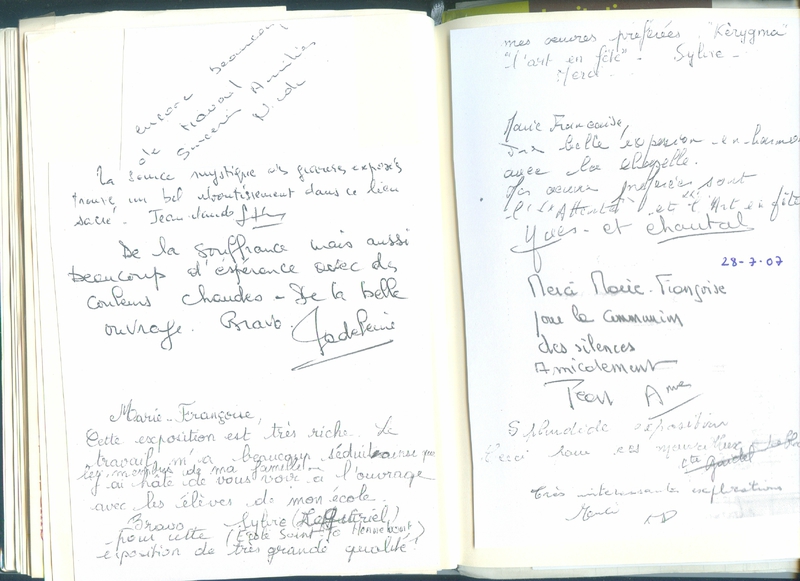 encore beaucoup
de travail
Sincères Amitiés
La source mystique des œuvres exposés
trouve un bel aboutissement dans ce lieu
sacré. Jean-
De la souffrance mais aussi
beaucoup d'espérance avec des
couleurs chaudes - De la belle
ouvrage. Bravo.
Madeleine
Marie-Françoise,
Cette exposition est très riche. Le
travail m'a beaucoup séduite ainsi que
les membres de ma famille
J'ai hâte de vous voir à l'ouvrage
avec les élèves de mon école.
Bravo Sylvie
pour cette (Ecole Saint-Jo Hennebont)
exposition de très grande qualité!
mes œuvres préférées "Kérygma"
"l'art en fête" - Sylvie -
Merci
Marie Françoise,
Très belle exposition - en harmonie
avec la chapelle.
Nos œuvres préférées sont
"l'Attente" et "l'Art en fête"
Yves - et Chantal
28-7-07
Merci Marie-Françoise
pour la communion
des silences
Amicalement
Jean
Splendide exposition
Merci pour ces
Très intéressantes explications
Merci